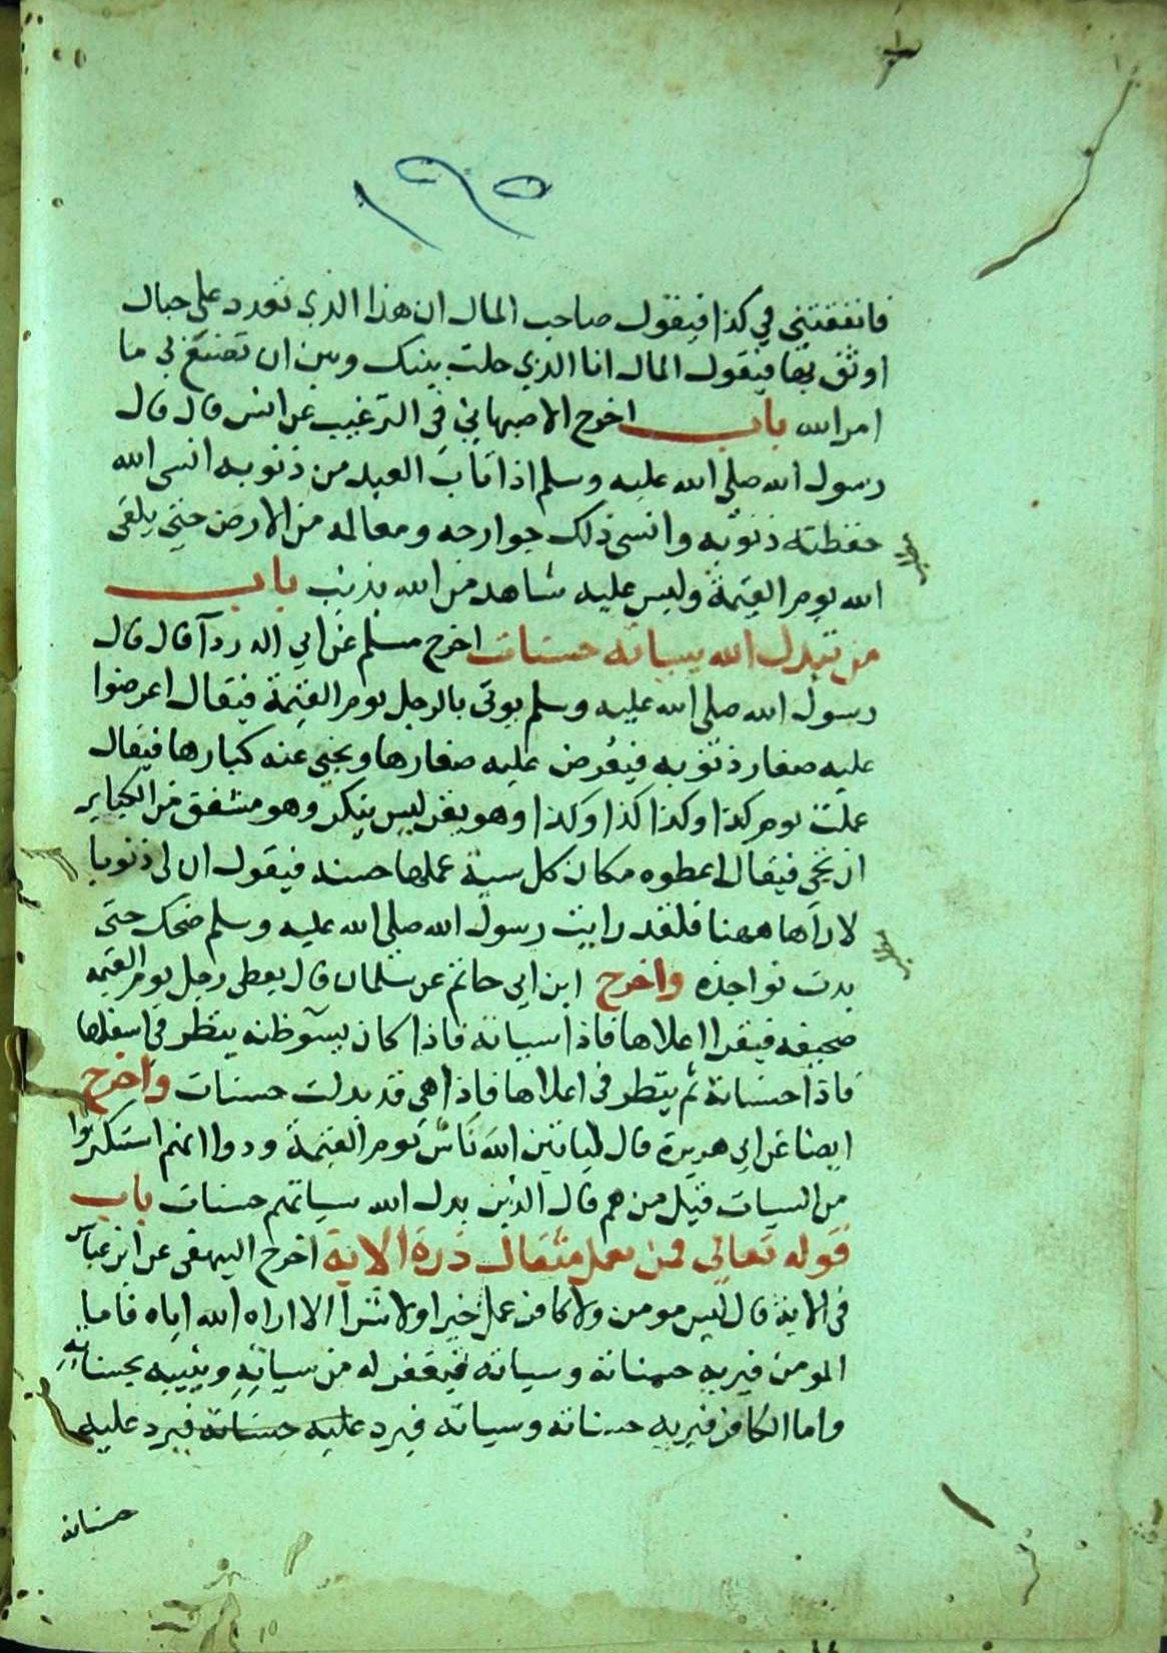 ١٩٥
فانفقتنى في كذا فيقول صاحب المال ان هذا الذي تورد على حبال
اوثق بها فيقول المال انا الذي حلت بينك وبين ان تصنع بى ما
امر الله باب اخرج الاصبهاني في الترغيب عن انس قال قال
رسول الله صلى الله عليه وسلم اذا تاب العبد من ذنوبه انسى الله
حفظته ذنوبه وانسى ذلك جوارحه ومعالمه من الارض حتى يلقى
الله يوم القيمة وليس عليه شاهد من الله بذنب باب
من تبدل الله سياته حسنات اخرج مسلم عن ابي الدردآ قال قال
رسول الله صلى الله عليه وسلم يوتى بالرجل يوم القيمة فيقال اعرضوا
عليه صغار ذنوبه فيعرض عليه صغارها ويخبى عنه كبارها فيقال
عملت يوم كذا وكذا كذا وكذا وهو يقر ليس ينكر وهو مشفق من الكباير
ان تجى فيقال اعطوه مكان كل سية عملها حسنه فيقول ان لى ذنوبا
لا اراها ههنا فلقد رايت رسول الله صلى الله عليه وسلم ضحك حتى
بدت نواجذه واخرج ابن ابي حاتم عن سلمان قال يعطى رجل يوم القيمه
صحيفه فيقرا اعلاها فاذا سياته فاذا كان يسوٓ ظنه ينظر في اسفلها
فاذا حسناته ثم ينظر في اعلاها فاذا هي قد بدلت حسنات واخرج
ايضا عن ابى هريرة قال لياتين الله ناس يوم القيمة ودوا انهم استكثروا
من السيات قيل من هم قال الذين بدل الله سياتهم حسنات باب
قوله تعالى فمن يعمل مثقال ذرة الاية اخرج البيهقى عن ابن عباس
في الاية قال ليس مومن ولا كافر عمل خيرا ولا شرا الا اراه الله اياه فاما
المومن فيريه حسناته وسياته فيغفر له من سياته ويثيبه بحسناته
واما الكافر فيريه حسناته وسياته فيرد عليه حسناته فيرد عليه
حسناته